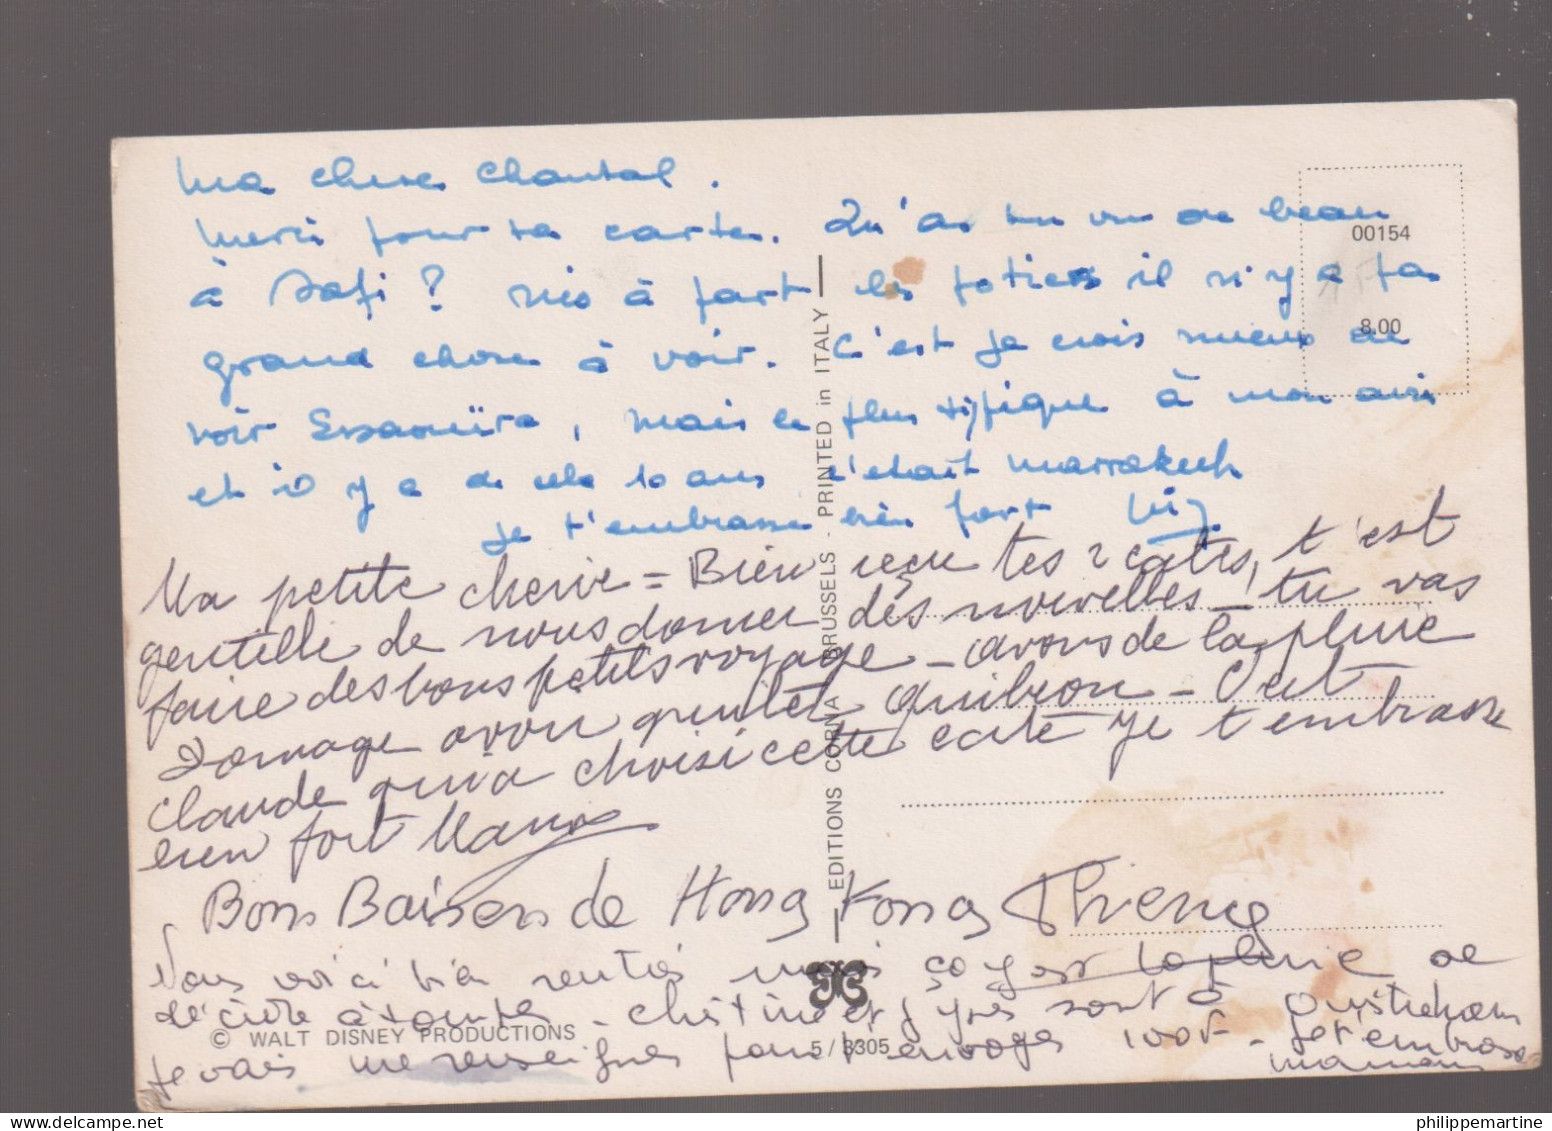 Ma chere Chantal.
Merci pour ta carte. Qu'as tu vu de beau
00154
à Safi ? à part les potiers il n'y a pas
8.00
grand chose à voir. C'est je crois mieux de
voir Essaouïra, mais le plus typique à mon avis
et il y a de cela 10 ans c'était Marrakech
je t'embrasse bien fort
Ma petite cherie = Bien reçu tes 2 cates, t'est
gentille de nous donner des nouvelles - tu vas
faire des bons petits voyage - avons de la pluie
domage avon quitter quibron - C'est
claude qui a choisi cette carte je t'embrasse
bien fort
Bons Baisers de Hong Kong Thierry
Nous voici bien rentrés mais la pluie
sont à Ouistreham
je vais me renseigner pour envoyer 100F - je t'embrasse
maman
EDITIONS CORNA BRUSSELS - PRINTED in ITALY
© WALT DISNEY PRODUCTIONS
5 / 3305
philippemartine